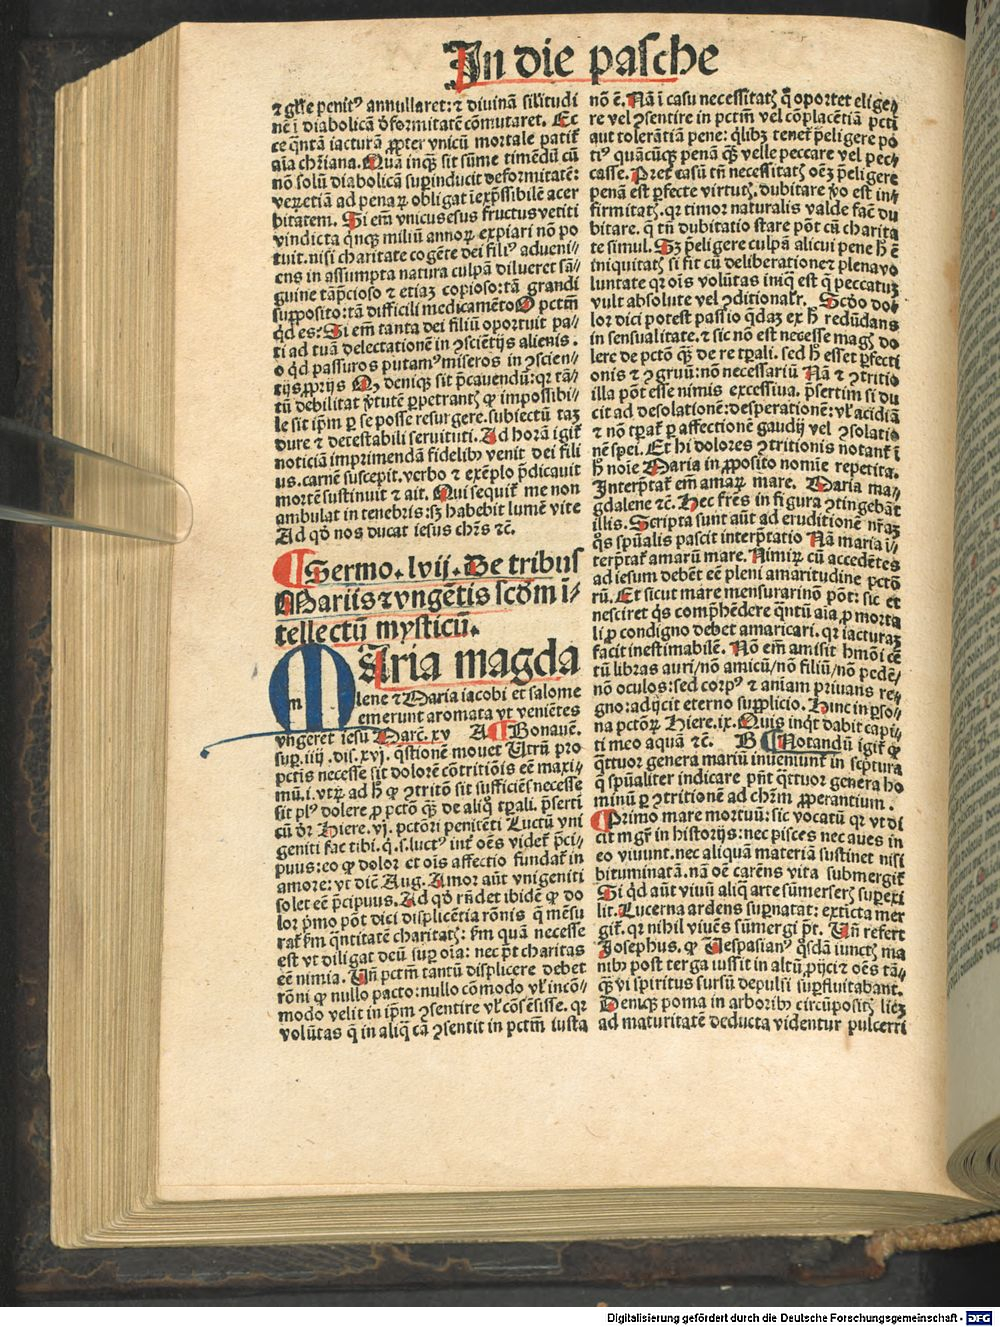 In die pasche
⁊ gl̃ie penitꝰ annullaret: ⁊ diuinā sil̓itudi
nē ī diabolicā d̓formitatē cōmutaret. Ec
ce q̄ntā iacturā ꝓpter vnicū mortale patit̓
aīa chr̄iana. Quā inqꝫ sit sūme timēdū cū
nō solū diabolicā suꝑinducit deformitatē:
veꝝetiā ad penaꝝ obligat īexp̄ssibilē acer
bitatem. Si em̄ vnicus esus fructus vetiti
vindicta q̄nqꝫ miliū annoꝝ expiari nō po
tuit. nisi charitate cogēte dei filiꝰ adueni/
ens in assumpta natura culpā dilueret sā/
guine tāp̄cioso ⁊ etiaꝫ copioso: tā grandi
suꝓposito: tā difficili medicamēto O pctm̄
qd̓ es: Si em̄ tanta dei filiū oportuit pa/
ti ad tuā delectationē in ꝯsciētijs alienis.
o qd̓ passuros putamꝰ miseros in ꝯscien/
tijs ꝓprijs Qꝫ deniqꝫ sit p̄cauendū: qꝛ tā/
tū debilitat v̓tutē ꝑpetrantꝭ ꝙ impossibi/
le sit ip̄m ꝑ se posse resurgere. subiectū taꝫ
dure ⁊ detestabili seruituti. Ad horā igit̓
noticiā imprimendā fidelibꝰ venit dei fili
us. carnē suscepit. verbo ⁊ exēplo p̄dicauit
mortē sustinuit ⁊ ait. Qui sequit̓ me non
ambulat in tenebris: sꝫ habebit lumē vite
Ad qd̓ nos ducat iesus chr̄s ⁊c̄.
Sermo. lvij. De tribus
Mariis ⁊ vngētis scd̓m ī-
tellectū mysticū.
Maria magda
lene ⁊ Maria iacobi et salome
emerunt aromata vt veniētes
vngerēt iesū Marc̄. xv A Bonauē.
suꝑ. iiij. dis. xvj. q̄stionē mouet Utrū pro
pctīs necesse sit dolorē cōtritiōis eē maxi-
mū. i. vtꝝ ad h̓ ꝙ ꝯtritō sit sufficiēs necesse
sit plꝰ dolere ꝓ pctō qꝫ̄ de aliq̊ tꝑali. p̄serti
cū d̓r Hiere. vj. pctōri penitēti Luctū vni
geniti fac tibi. q̓. s. luctꝰ int̓ oēs videt̓ p̄ci-
puus: eo ꝙ dolor et oīs affectio fundat̓ in
amore: vt dic̄ Aug. Amor aūt vnigeniti
solet eē p̄cipuus. Ad qd̓ rn̄det ibidē ꝙ do
lor p̄mo pōt dici displicētia rōnis q̄ mēsu
rat̓ fm̄ q̄ntitatē charitatꝭ: fm̄ quā necesse
est vt diligat deū suꝑ oīa: nec p̄t charitas
eē nimia. Un̄ pctm̄ tantū displicere debet
rōni ꝙ nullo pacto: nullo cōmodo vl̓ incō/
modo velit in ip̄m ꝯsentire vl̓ cōsēsisse. qꝛ
volūtas q̄ in aliq̄ cā ꝯsentit in pctm̄ iusta
nō ē. Nā ī casu necessitatꝭ q̄ oportet elige/
re vel ꝯsentire in pctm̄ vel cōplacētiā pctī
aut tolerātiā pene: q̓libꝫ tenet̓ p̄eligere po
tiꝰ quācūqꝫ penā qꝫ̄ velle peccare vel pec/
casse. Pret̓ casū tn̄ necessitatꝭ oēꝫ p̄eligere
penā est ꝑfecte virtutꝭ. dubitare v̓o est in/
firmitatꝭ. qꝛ timor naturalis valde fac̄ du
bitare. q̄ tn̄ dubitatio stare pōt cū charita
te simul. Sꝫ p̄eligere culpā alicui pene h̓ ē
iniquitatꝭ si fit cū deliberatione ⁊ plena vo
luntate qꝛ oīs volūtas iniq̄ est q̄ peccatuꝫ
vult absolute vel ꝯditional̓r. Scd̓o do/
lor dici potest passio q̄daꝫ ex h̓ redūdans
in sensualitate. ⁊ sic nō est necesse magꝭ do
lere de pctō qꝫ̄ de re tꝑali. sed h̓ esset ꝑfecti
onis ⁊ ꝯgruū: nō necessariū Nā ⁊ ꝯtritio
illa pōt esse nimis excessiua. p̄sertim si du
cit ad desolationē: desperationē: vl̓ acidiā
⁊ nō tꝑat̓ ꝑ affectionē gaudij vel ꝯsolatio
nē spei. Et hi dolores ꝯtritionis notant̓ ī
h̓ noīe Maria in ꝓposito nomīe repetita.
Interp̄tat̓ em̄ amaꝝ mare. Maria ma/
gdalene ⁊c̄. Hec fr̄es in figura ꝯtingebāt
illis. Scripta sunt aūt ad eruditionē nr̄aꝫ
q̊s spūalis pascit interp̄tatio Nā maria ī/
terp̄tat̓ amarū mare. Nimiꝝ cū accedētes
ad iesum debēt eē pleni amaritudine pctō
rū. Et sicut mare mensurari nō pōt: sic et
nesciret q̊s comp̄hēdere q̄ntū aīa ꝓ morta
li ꝑ condigno debet amaricari. qꝛ iacturaꝫ
facit inestimabilē. Nō em̄ amisit hm̄oi cē
tū libras auri/ nō amicū/ nō filiū/ nō pedē/
nō oculos: sed corpꝰ ⁊ aniam priuans re/
gno: adijcit eterno suꝓplicio. Hinc in ꝑso/
na pctoꝝ Hiere. ix. Quis inq̓t dabit capi/
ti meo aquā ⁊c̄. B Notandū igit̓ ꝙ
q̄ttuor genera mariū inueniunt̓ in sc̓ptura
q̄ spūaliter indicare pn̄t q̄ttuor genera ho
minū ꝑ ꝯtritionē ad chr̄m ꝓperantium.
Primo mare mortuū: sic vocatū qꝛ vt di
cit mgr̄ in historijs: nec pisces nec aues in
eo viuunt. nec aliquā materiā sustinet nisi
bituminatā. nā oē carēns vita submergit̓
Si qd̓ aūt viuū aliq̄ arte sūmerserꝭ suꝑexi
lit. Lucerna ardens suꝑnatat: extīcta mer
git̓. qꝛ nihil viuēs sūmergi p̄t. Un̄ refert
Josephus. ꝙ Uespasianꝰ q̊sdā iunctꝭ ma
nibꝰ post terga iussit in altū ꝓijci ⁊ oēs tā/
qꝫ̄ vi spiritus sursū depulsi suꝑfluitabant.
Deniqꝫ poma in arboribꝰ circūpositꝭ licꝫ
ad maturitatē deducta videntur pulcerri
Digitalisierung gefördert durch die Deutsche Forschungsgemeinschaft - DFG